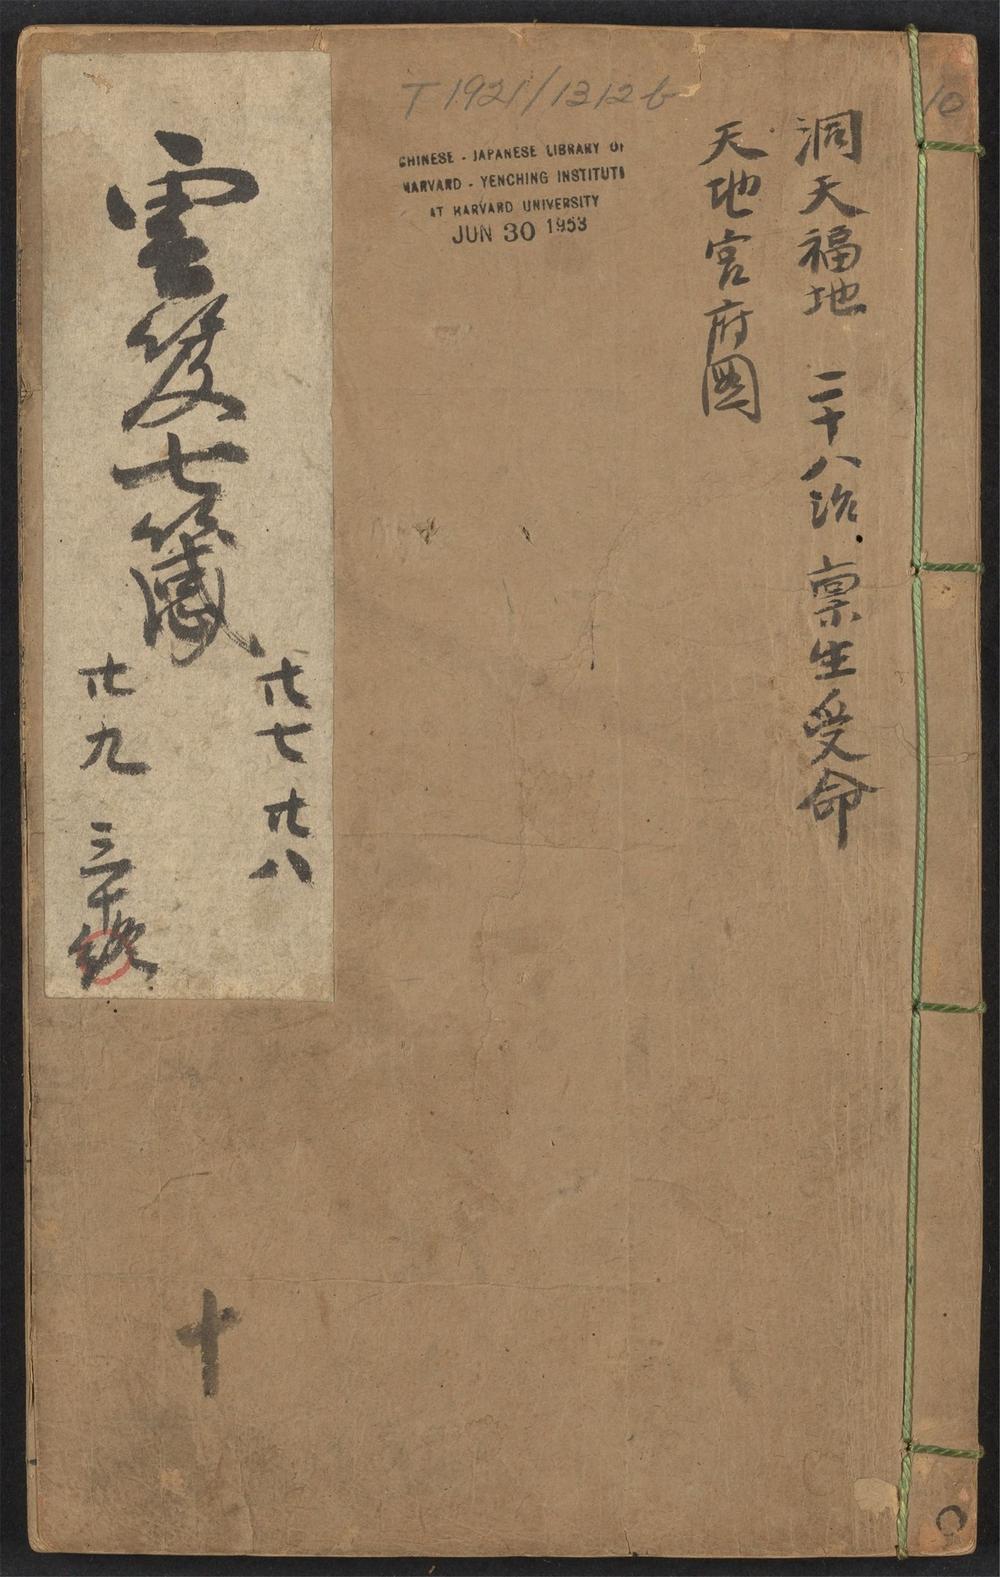 洞天福地 二十八治 稟生受命
天地宮府圖
T 1921/1312b
CHINESE - JAPANESE LIBRARY OF
HARVARD - YENCHING INSTITUTE
AT HARVARD UNIVERSITY
JUN 30 1953
雲笈七籤
廿七 廿八
廿九 三十終
十
10